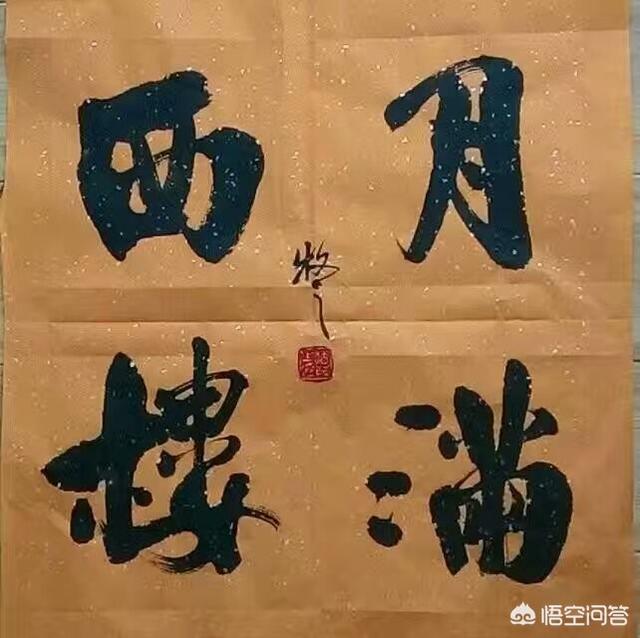 月满
西樓
悟空问答